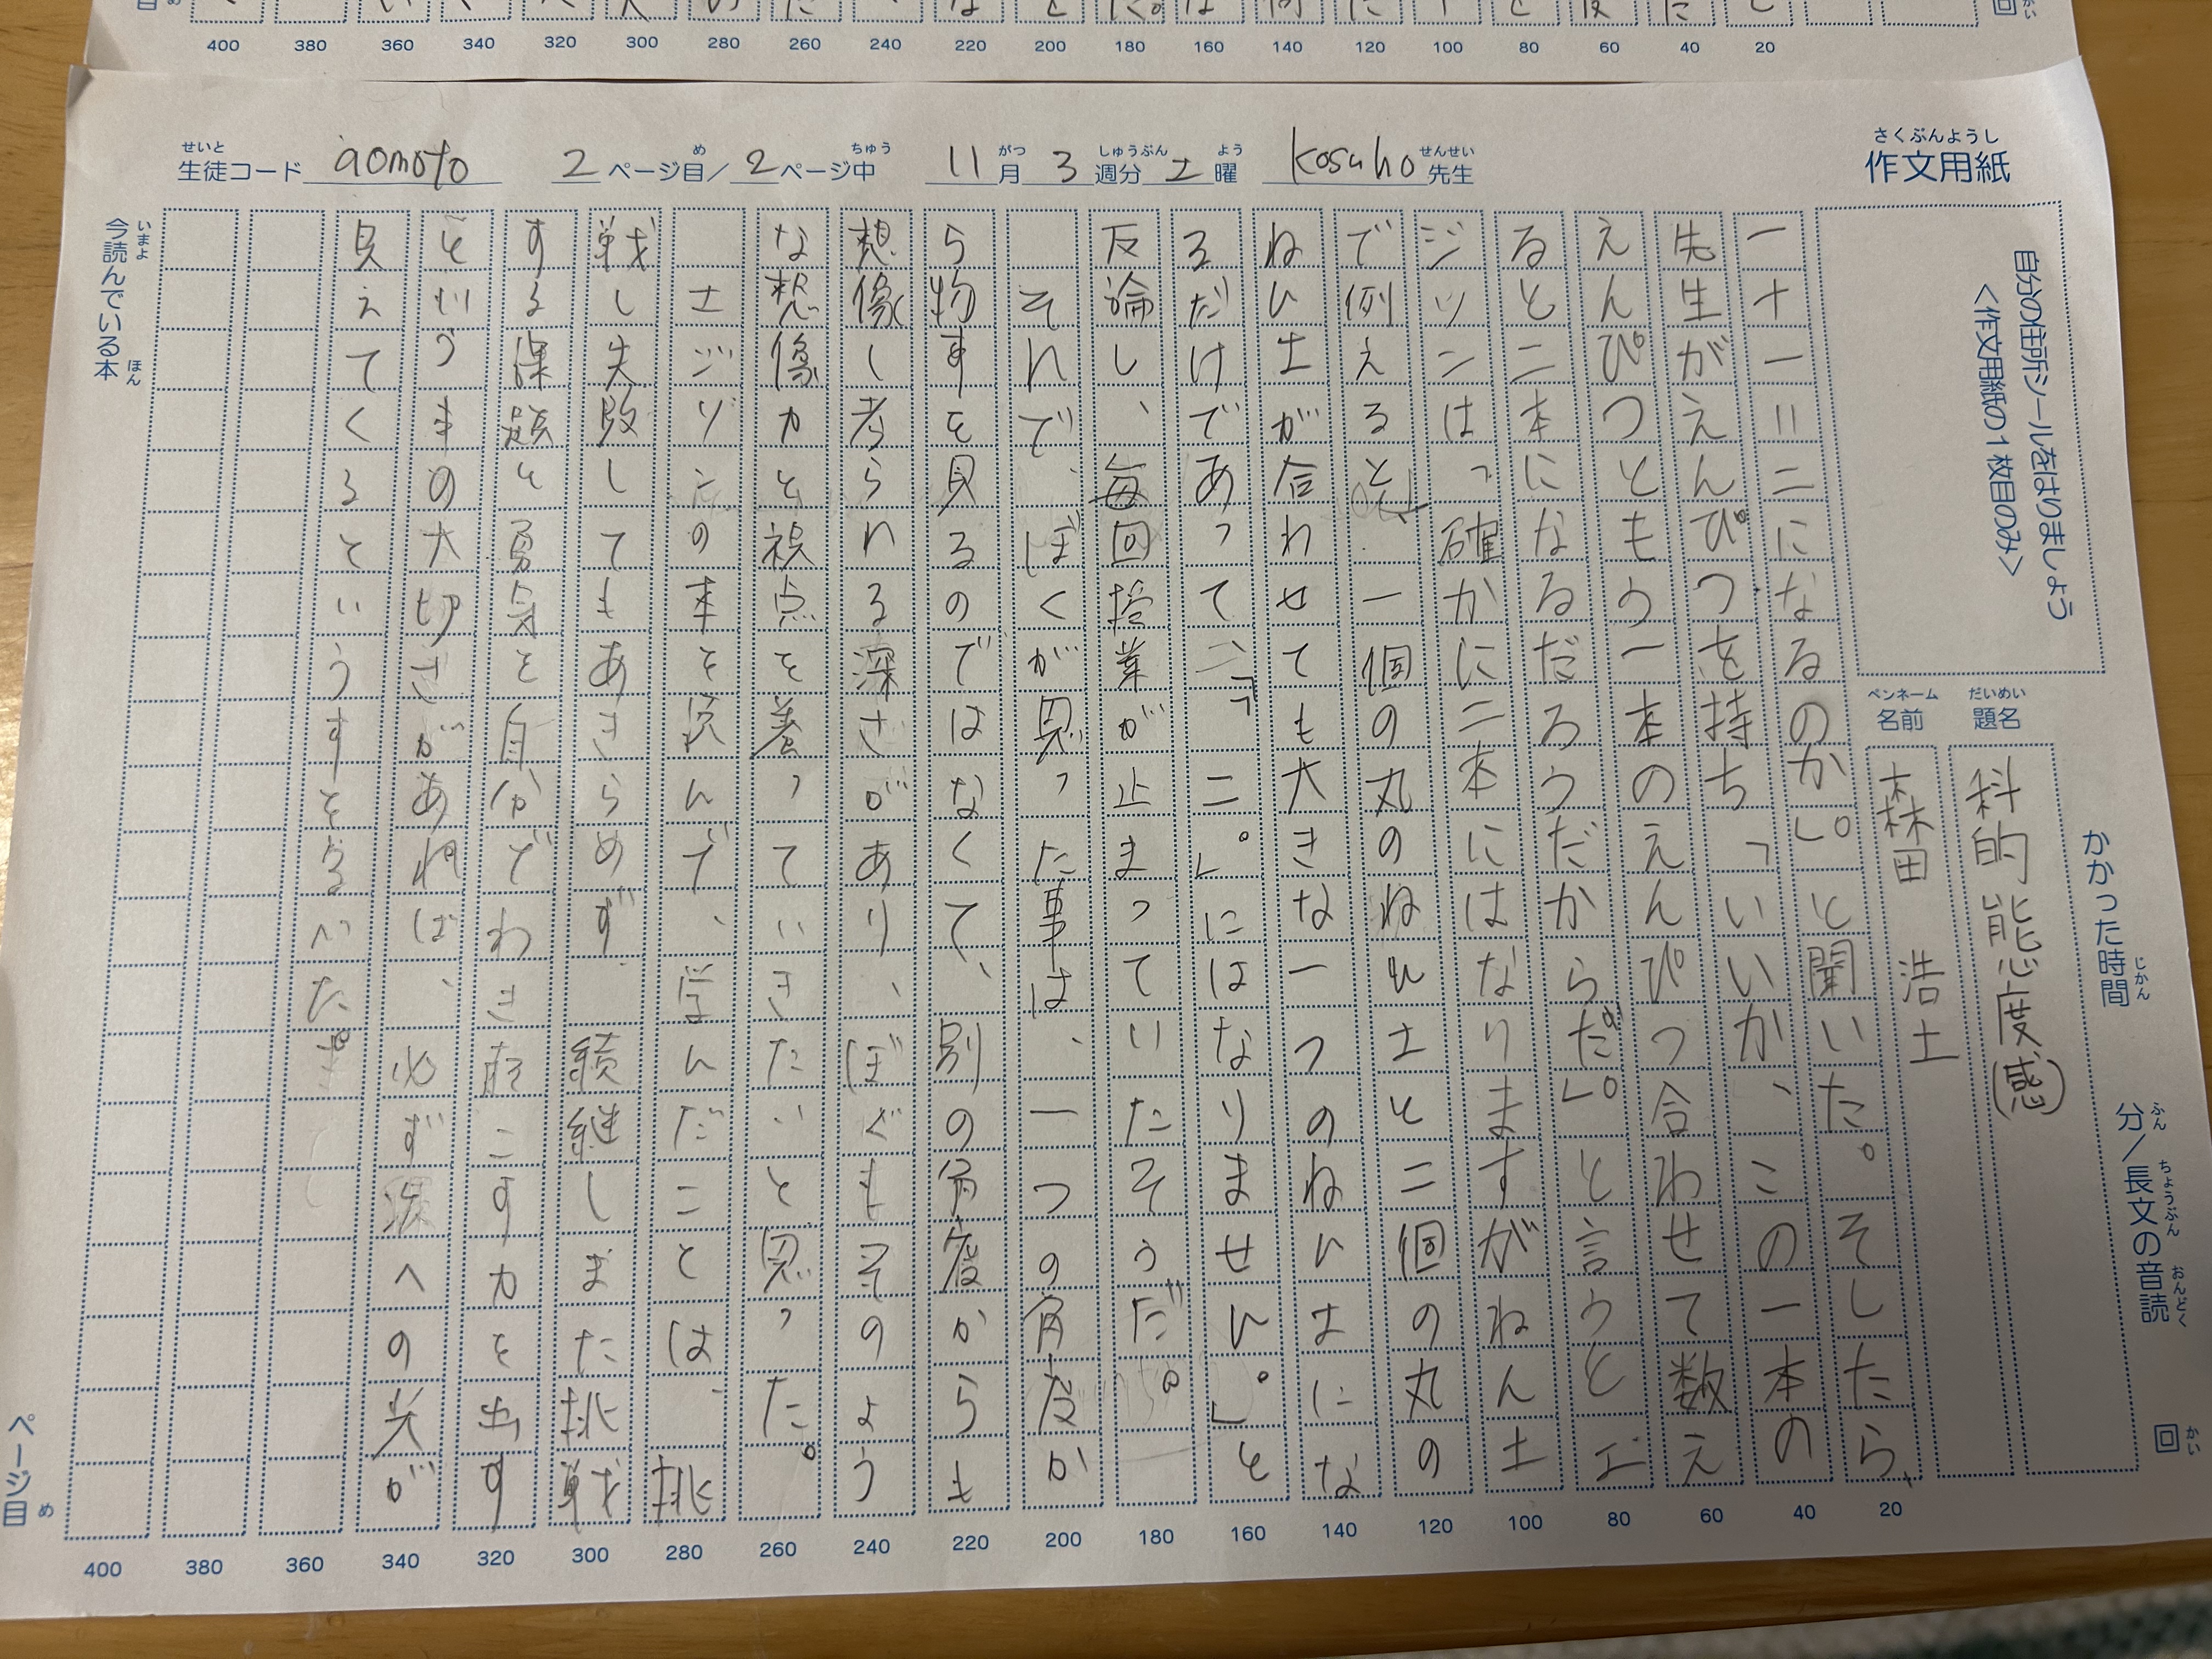 作文用紙
生徒コード aomoto 2ページ目/2ページ中 11月3週分土曜 kosuho先生
自分の住所シールをはりましょう
<作文用紙の1枚目のみ>
かかった時間 分/長文の音読 回
題名 科的能度(感)
名前 森田 浩土
一十一=二になるのか」。と聞いた。そしたら、
先生がえんぴつを持ち「いいか、この一本の
えんぴつともう一本のえんぴつ合わせて数え
ると二本になるだろうだからだ」。と言うとエ
ジソンは「確かに二本にはなりますがねん土
で例えると、一個の丸のねれ土と二個の丸の
ねん土が合わせても大きな一つのねんよにな
るだけであって「二。」にはなりません。」と
反論し、毎回授業が止まっていたそうだ。
それで、ぼくが思った事は、一つの角度か
ら物すを見るのではなくて、別の角度からも
想像し考られる深さがあり、ぼくもそのよう
な想像力と視点を養っていきたいと思った。
エジソンの本を読んで、学んだことは、挑
戦し失敗してもあきらめず、続継しまた挑戦
する課題と勇気と自分でわき起こす力を出す
というまの大切さがあれば、必ず次への光が
見えてくるというすとをるべた。
20 40 60 80 100 120 140 160 180 200 220 240 260 280 300 320 340 360 380 400
今読んでいる本
ページ目